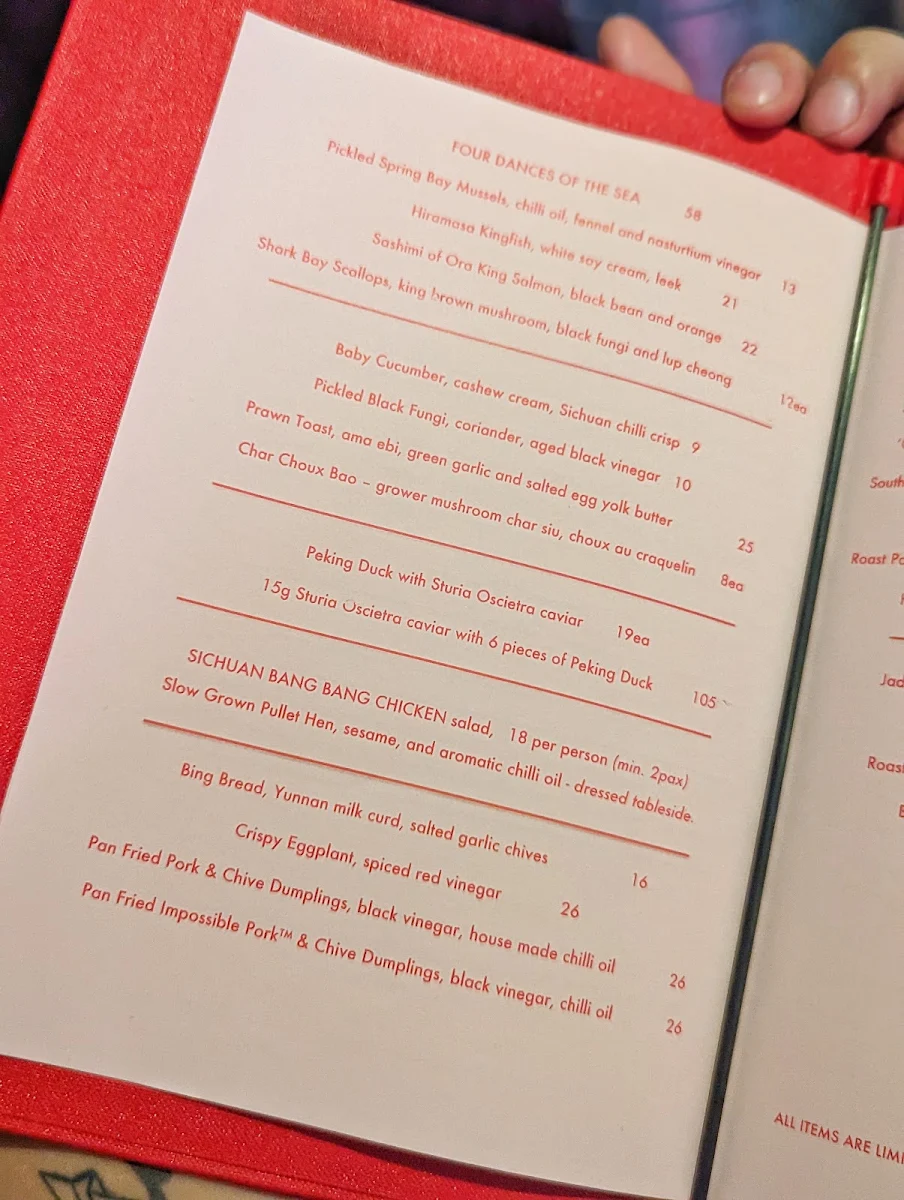 FOUR DANCES OF THE SEA 58
Pickled Spring Bay Mussels, chilli oil, fennel and nasturtium vinegar 13
Hiramasa Kingfish, white soy cream, leek 21
Sashimi of Ora King Salmon, black bean and orange 22
Shark Bay Scallops, king brown mushroom, black fungi and lup cheong 12ea
Baby Cucumber, cashew cream, Sichuan chilli crisp 9
Pickled Black Fungi, coriander, aged black vinegar 10
Prawn Toast, ama ebi, green garlic and salted egg yolk butter 25
Char Choux Bao – grower mushroom char siu, choux au craquelin 8ea
Peking Duck with Sturia Oscietra caviar 19ea
15g Sturia Oscietra caviar with 6 pieces of Peking Duck 105
SICHUAN BANG BANG CHICKEN salad, 18 per person (min. 2pax)
Slow Grown Pullet Hen, sesame, and aromatic chilli oil - dressed tableside.
Bing Bread, Yunnan milk curd, salted garlic chives 16
Crispy Eggplant, spiced red vinegar 26
Pan Fried Pork & Chive Dumplings, black vinegar, house made chilli oil 26
Pan Fried Impossible Pork™ & Chive Dumplings, black vinegar, chilli oil 26
South
Roast
Jad
Roas
ALL ITEMS ARE LIM